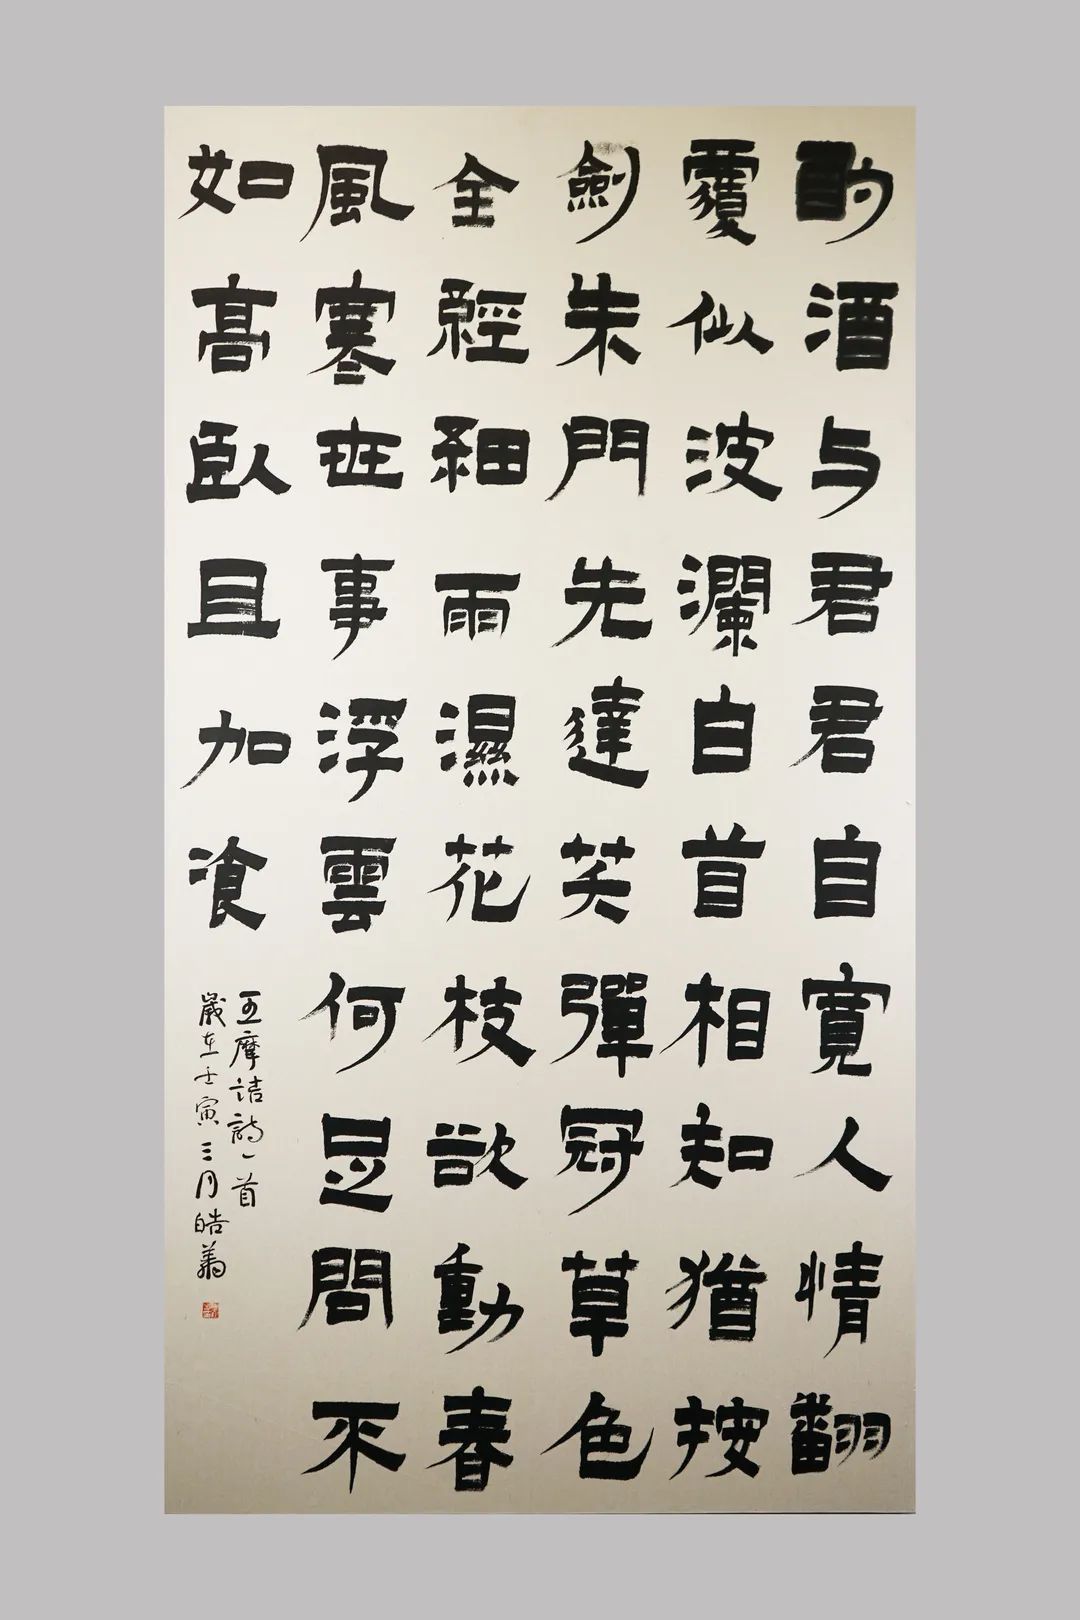 酌酒与君君自寬人情翻
覆似波瀾白首相知猶按
劍朱門先達笑彈冠草色
全經細雨濕花枝欲動春
風寒世事浮雲何足問不
如高臥且加湌
王摩詰詩一首
歲在壬寅三月皓